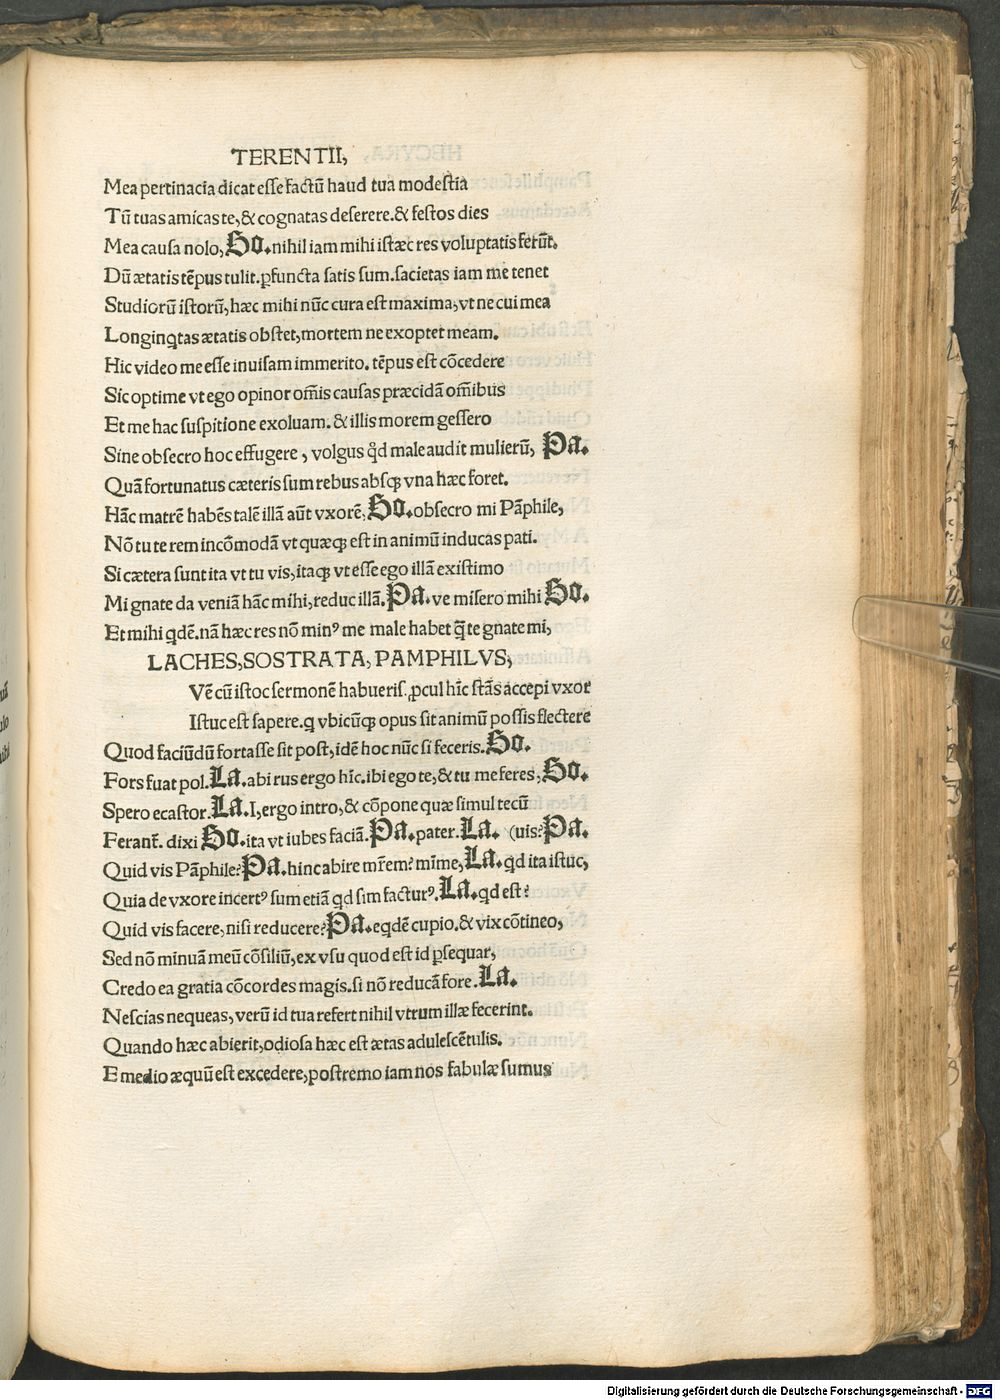 TERENTII,
Mea pertinacia dicat esse factū haud tua modestia
Tū tuas amicas te, & cognatas deserere. & festos dies
Mea causa nolo, So. nihil iam mihi istæc res voluptatis ferūt.
Dū ætatis tēpus tulit. ꝑfuncta satis sum. sacietas iam me tenet
Studiorū istorū, hæc mihi nūc cura est maxima, vt ne cui mea
Longinq̄tas ætatis obstet, mortem ne exoptet meam.
Hic video me esse inuisam immerito. tēpus est cōcedere
Sic optime vt ego opinor om̄is causas præcidā om̄ibus
Et me hac suspitione exoluam. & illis morem gessero
Sine obsecro hoc effugere, volgus q̄d male audit mulierū, Pa.
Quā fortunatus cæteris sum rebus absqꝫ vna hæc foret.
Hāc matrē habēs talē illā aūt vxorē, So. obsecro mi Pāphile,
Nō tu te rem incōmodā vt quæqꝫ est in animū inducas pati.
Si cætera sunt ita vt tu vis, itaqꝫ vt esse ego illā existimo
Mi gnate da veniā hāc mihi, reduc illā. Pa. ve misero mihi So.
Et mihi q̄dē. nā hæc res nō minꝰ me male habet q̄ te gnate mi,
LACHES, SOSTRATA, PAMPHILVS,
Vē cū istoc sermonē habueris ꝓcul hīc stās accepi vxor
Istuc est sapere. q vbicūqꝫ opus sit animū possis flectere
Quod faciūdū fortasse sit post, idē hoc nūc si feceris. So.
Fors fuat pol. La. abi rus ergo hīc. ibi ego te, & tu me feres, So.
Spero ecastor. La. I, ergo intro, & cōpone quæ simul tecū
Ferant̄. dixi So. ita vt iubes faciā. Pa. pater. La. (uis? Pa.
Quid vis Pāphile? Pa. hinc abire mr̄em? mīme, La. q̄d ita istuc,
Quia de vxore incertꝰ sum etiā q̄d sim facturꝰ. La. q̄d est?
Quid vis facere, nisi reducere? Pa. eq̄dē cupio. & vix cōtineo,
Sed nō minuā meū cōsiliū, ex vsu quod est id ꝑsequar,
Credo ea gratia cōcordes magis. si nō reducā fore. La.
Nescias nequeas, verū id tua refert nihil vtrum illæ fecerint.
Quando hæc abierit, odiosa hæc est ætas adulescētulis.
E medio æquū est excedere, postremo iam nos fabulæ sumus
Digitalisierung gefördert durch die Deutsche Forschungsgemeinschaft - DFG